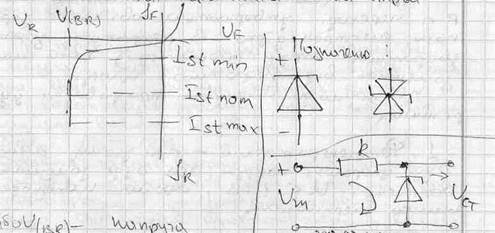 U_R U(BR) I_F U_F
I st min
I st nom
I st max
I_R
Позначено :
+
-
+ R
U_m U_ст
U(BR) – напруга